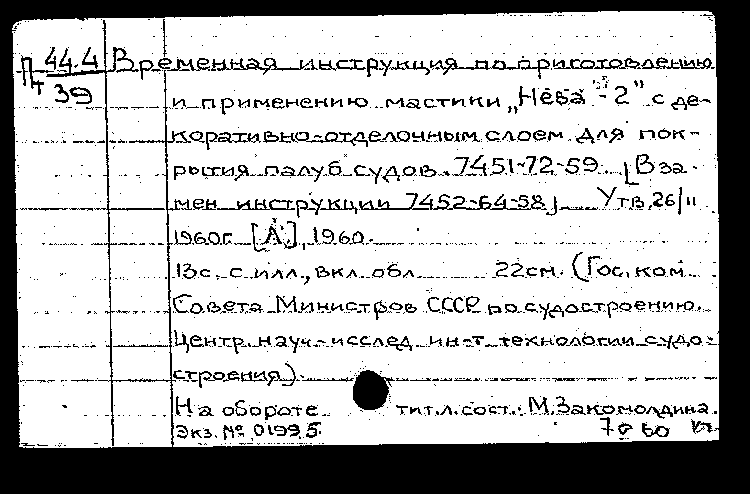 П 44.4 Временная инструкция по приготовлению
т 39 и применению мастики „Нева"-2" с де-
коративно-отделочным слоем для пок-
рытия палуб судов. 7451-72-59. [Вза-
мен инструкции 7452-64-58] Утв. 26/II
1960г. [Л.], 1960.
13с. с илл., вкл. обл. 22см. (Гос. ком.
Совета Министров СССР по судостроению.
Центр. науч.-исслед. ин-т технологии судо-
строения).
На обороте тит.л. сост.: М.Закомолдина.
Экз. № 01995.